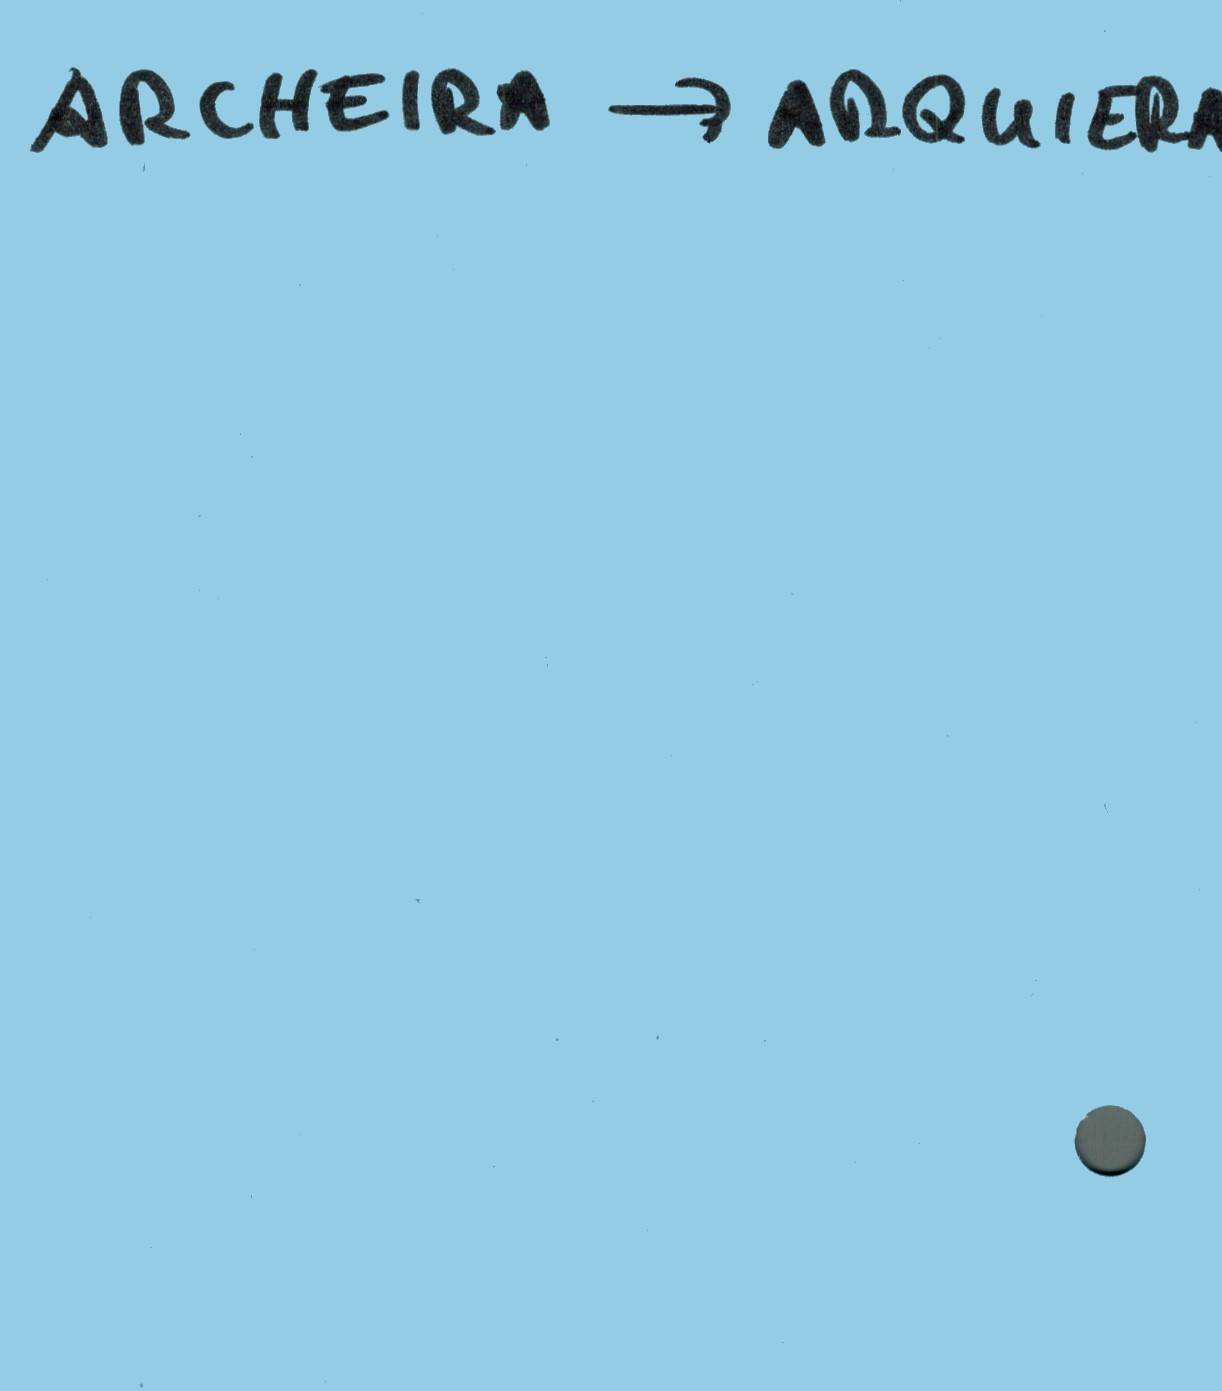 ARCHEIRA → ARQUIERA